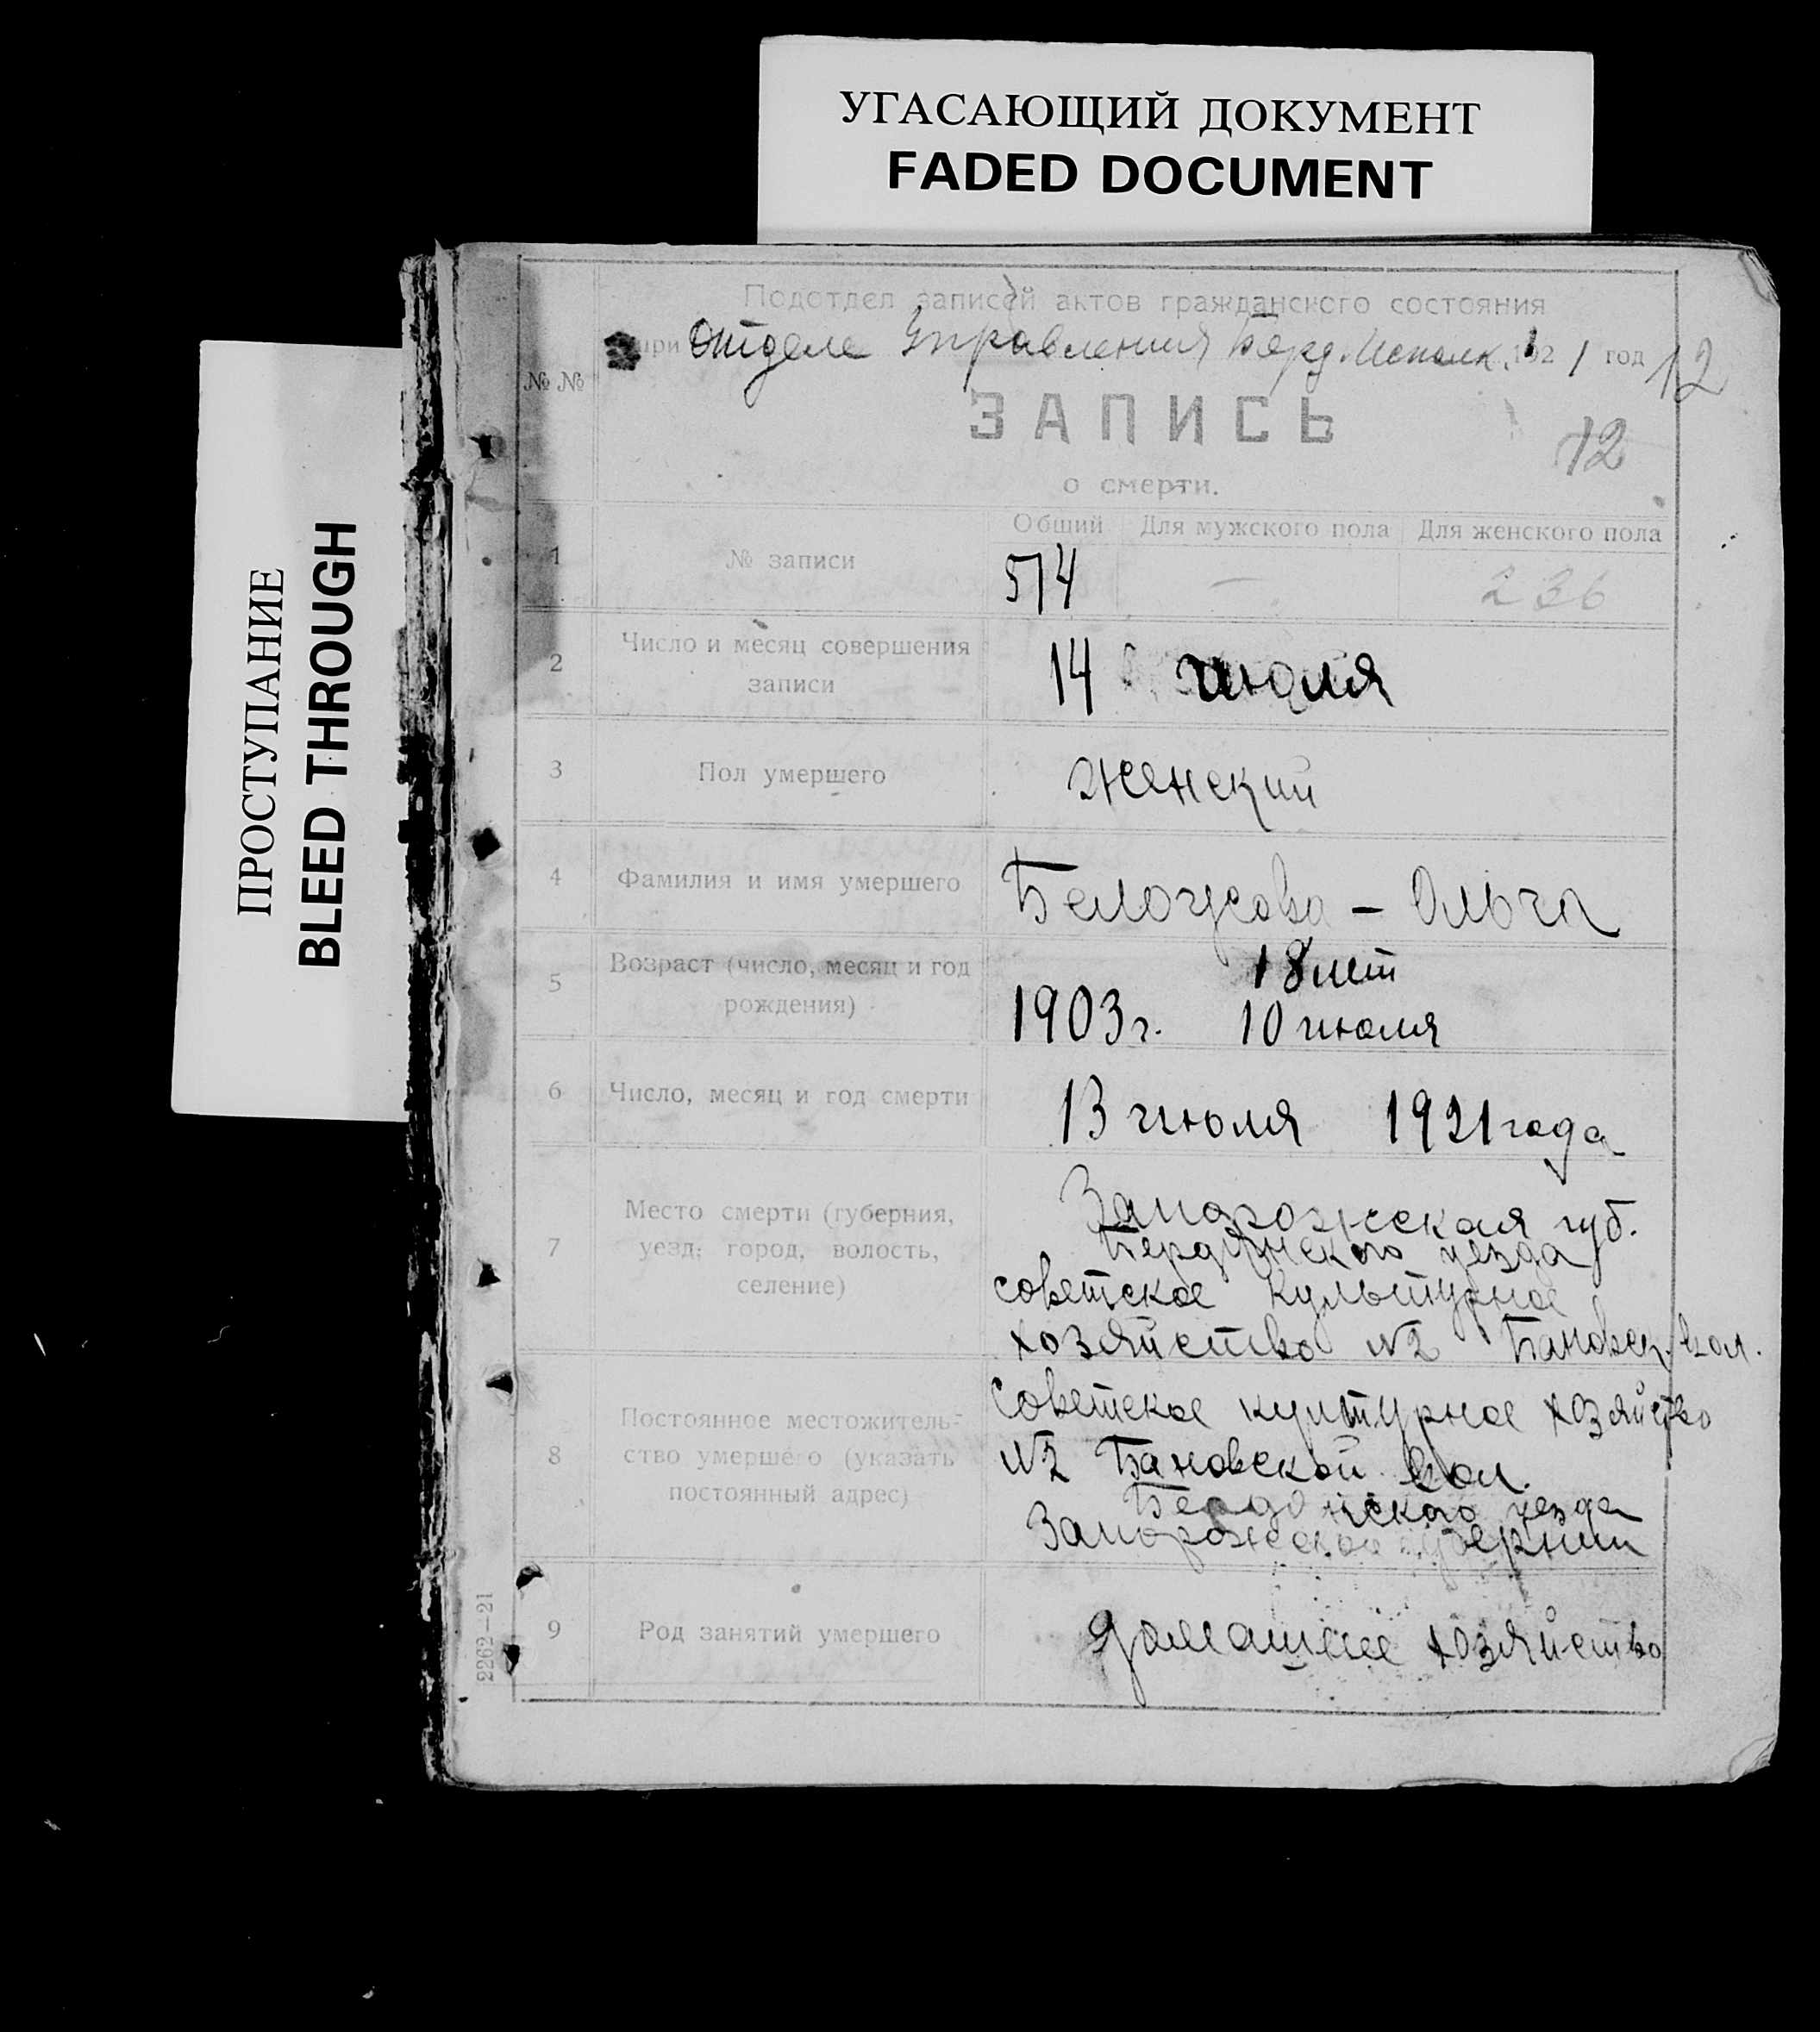 УГАСАЮЩИЙ ДОКУМЕНТ
FADED DOCUMENT
ПРОСТУПАНИЕ
BLEED THROUGH
Подотдел записей актов гражданского состояния
при Отделе Управления Берд. Исполк. 1921 год
12
№ №
ЗАПИСЬ
12
о смерти.
Общий Для мужского пола Для женского пола
1 № записи 574 — 236
2 Число и месяц совершения
записи
14 июля
3 Пол умершего женский
4 Фамилия и имя умершего Ольга
5 Возраст (число, месяц и год
рождения)
18 лет
1903 г. 10 июля
6 Число, месяц и год смерти 13 июля 1921 года
7 Место смерти (губерния,
уезд, город, волость,
селение)
Запорожская губ.
Бердянского уезда
советское культурное
хозяйство №2 Бановск. вол.
8 Постоянное местожитель-
ство умершего (указать
постоянный адрес)
Советское культурное хозяйство
№2 Бановской вол.
Бердянского уезда
Запорожской губернии
9 Род занятий умершего домашнее хозяйство
2262—21